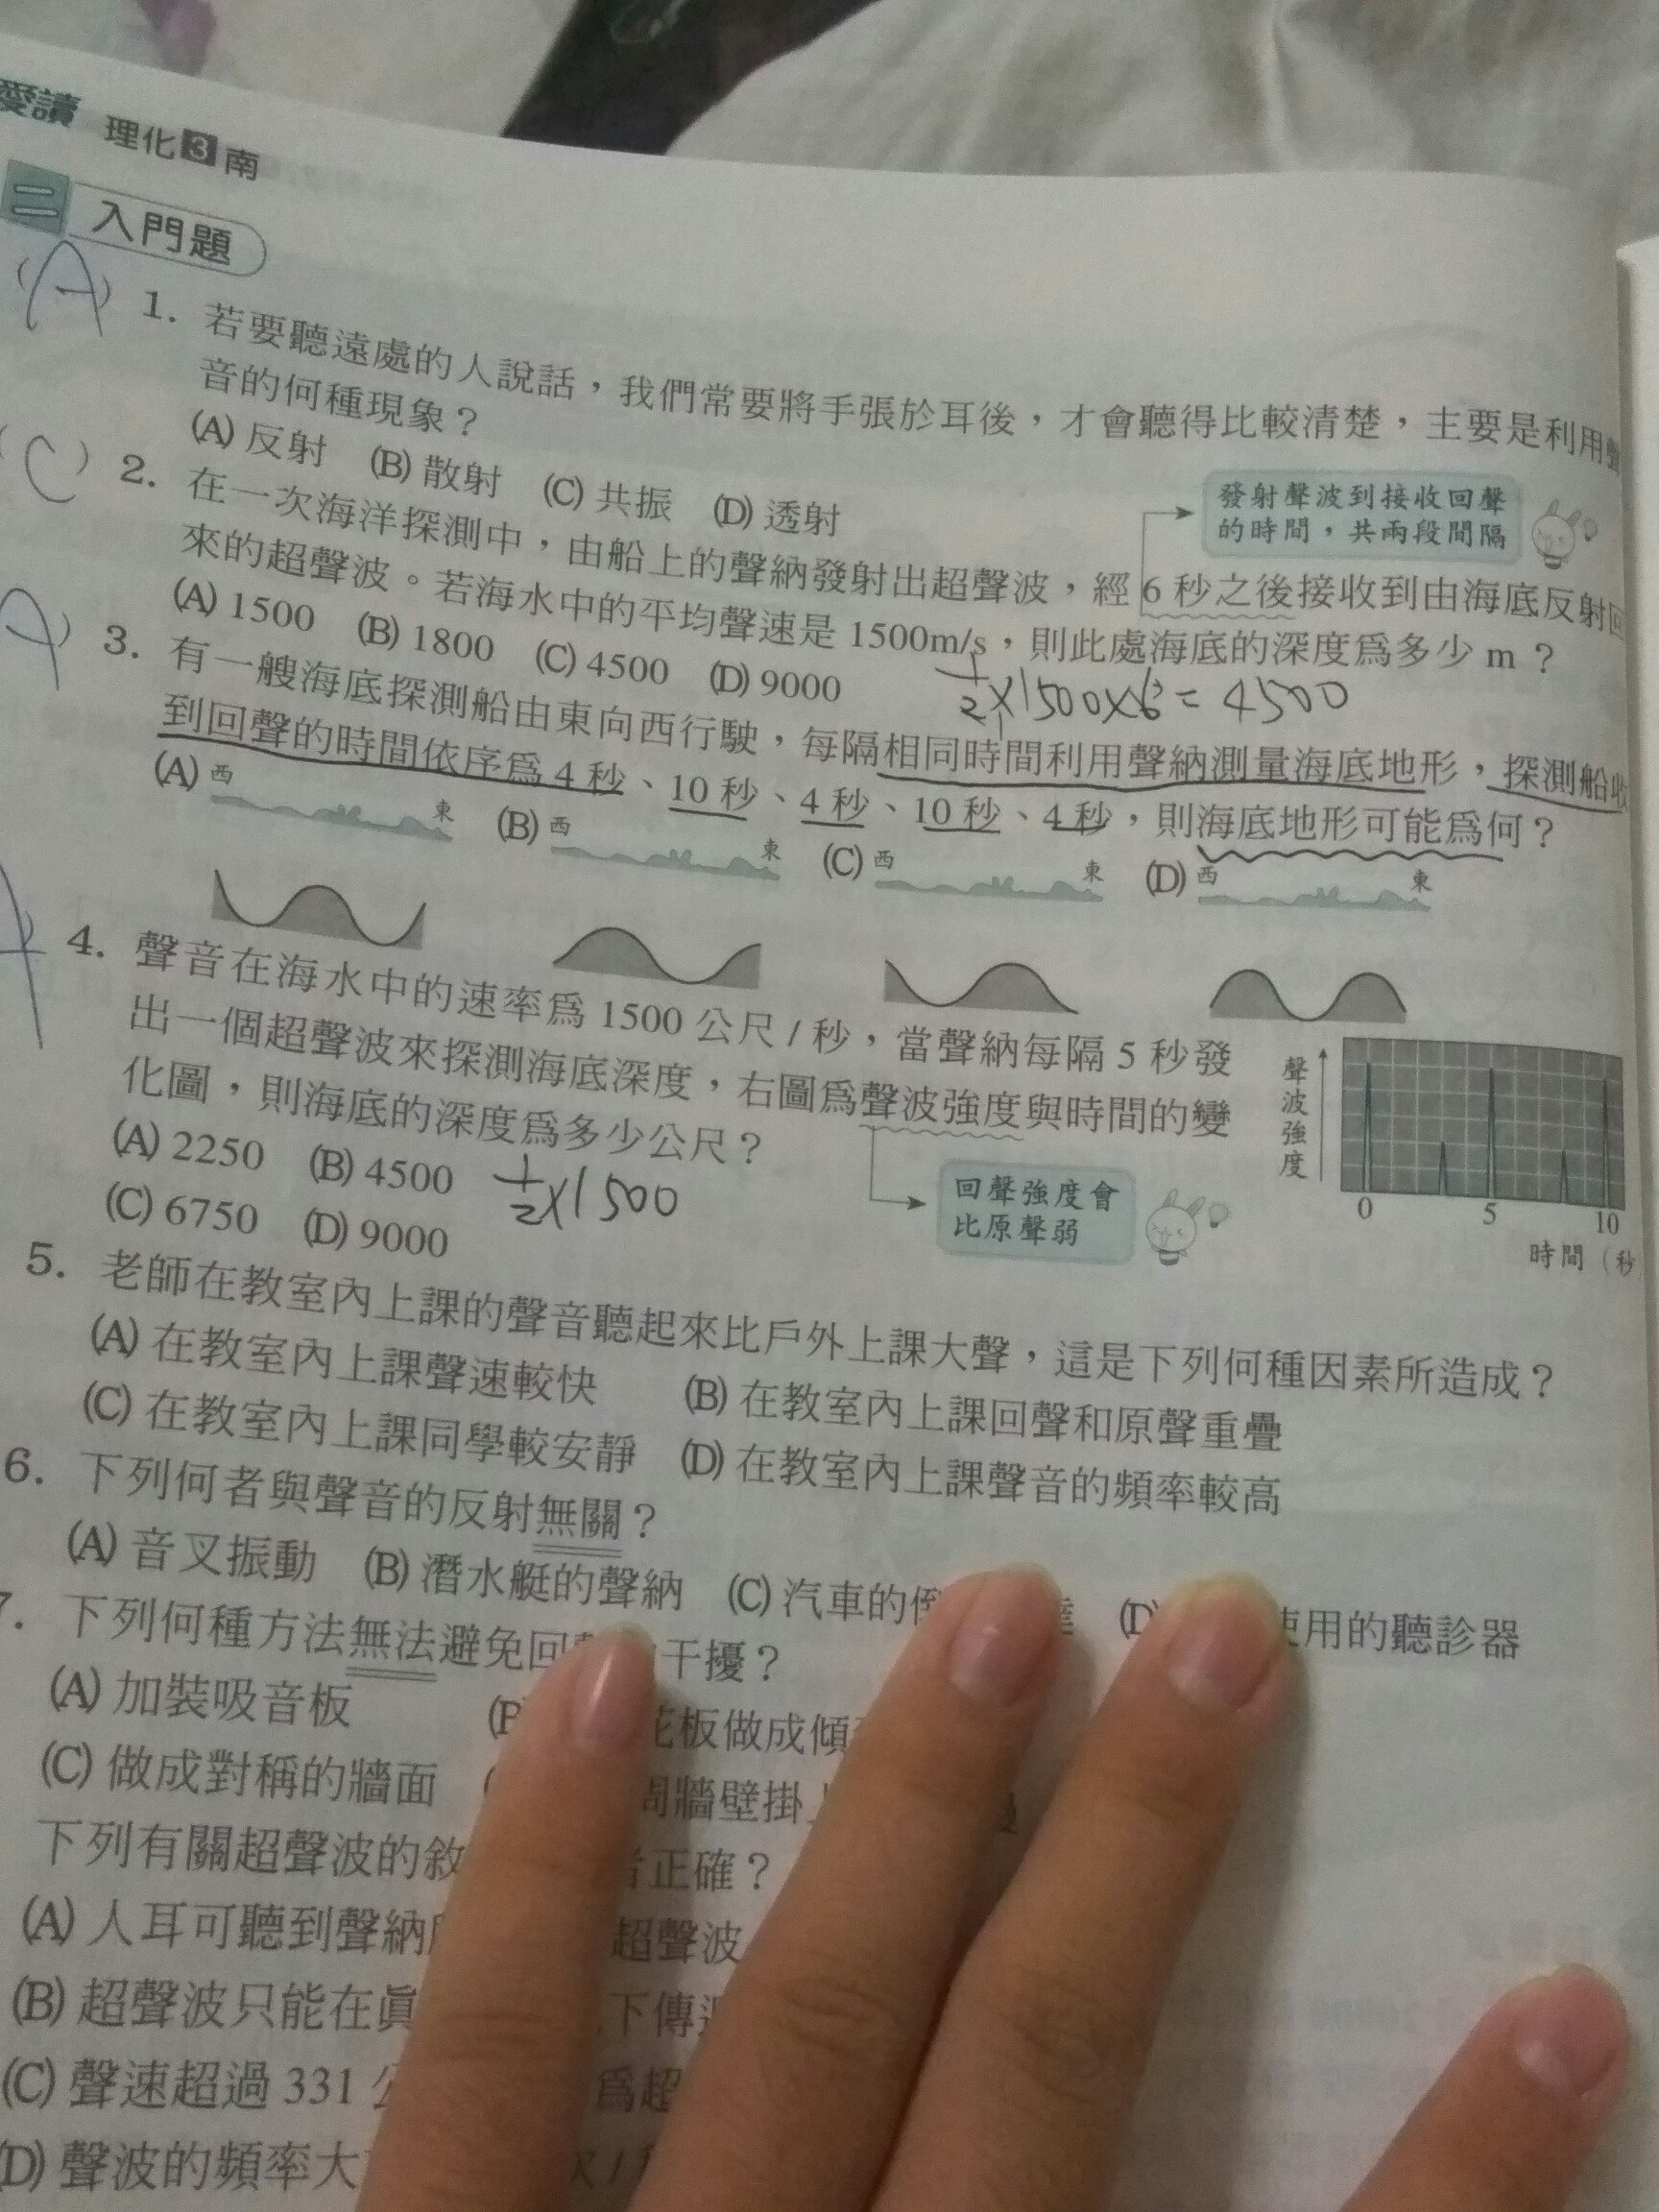 愛讀 理化3南
二 入門題
(A) 1. 若要聽遠處的人說話，我們常要將手張於耳後，才會聽得比較清楚，主要是利用聲
音的何種現象？
(A) 反射 (B) 散射 (C) 共振 (D) 透射
發射聲波到接收回聲
的時間，共兩段間隔
(C) 2. 在一次海洋探測中，由船上的聲納發射出超聲波，經 6 秒之後接收到由海底反射回
來的超聲波。若海水中的平均聲速是 1500m/s，則此處海底的深度為多少 m？
(A) 1500 (B) 1800 (C) 4500 (D) 9000
1/2×1500×6=4500
A) 3. 有一艘海底探測船由東向西行駛，每隔相同時間利用聲納測量海底地形，探測船收
到回聲的時間依序為 4 秒、10 秒、4 秒、10 秒、4 秒，則海底地形可能為何？
(A) 西 東 (B) 西 東 (C) 西 東 (D) 西 東
4. 聲音在海水中的速率為 1500 公尺 / 秒，當聲納每隔 5 秒發
出一個超聲波來探測海底深度，右圖為聲波強度與時間的變
化圖，則海底的深度為多少公尺？
(A) 2250 (B) 4500
(C) 6750 (D) 9000
1/2×1500
回聲強度會
比原聲弱
聲波強度
0 5 10
時間（秒
5. 老師在教室內上課的聲音聽起來比戶外上課大聲，這是下列何種因素所造成？
(A) 在教室內上課聲速較快 (B) 在教室內上課回聲和原聲重疊
(C) 在教室內上課同學較安靜 (D) 在教室內上課聲音的頻率較高
6. 下列何者與聲音的反射無關？
(A) 音叉振動 (B) 潛水艇的聲納 (C) 汽車的倒 (D) 使用的聽診器
7. 下列何種方法無法避免回 干擾？
(A) 加裝吸音板 (B 花板做成傾
(C) 做成對稱的牆面 周牆壁掛
下列有關超聲波的敘 正確？
(A) 人耳可聽到聲納 超聲波
(B) 超聲波只能在真 下傳
(C) 聲速超過 331 為超
(D) 聲波的頻率大